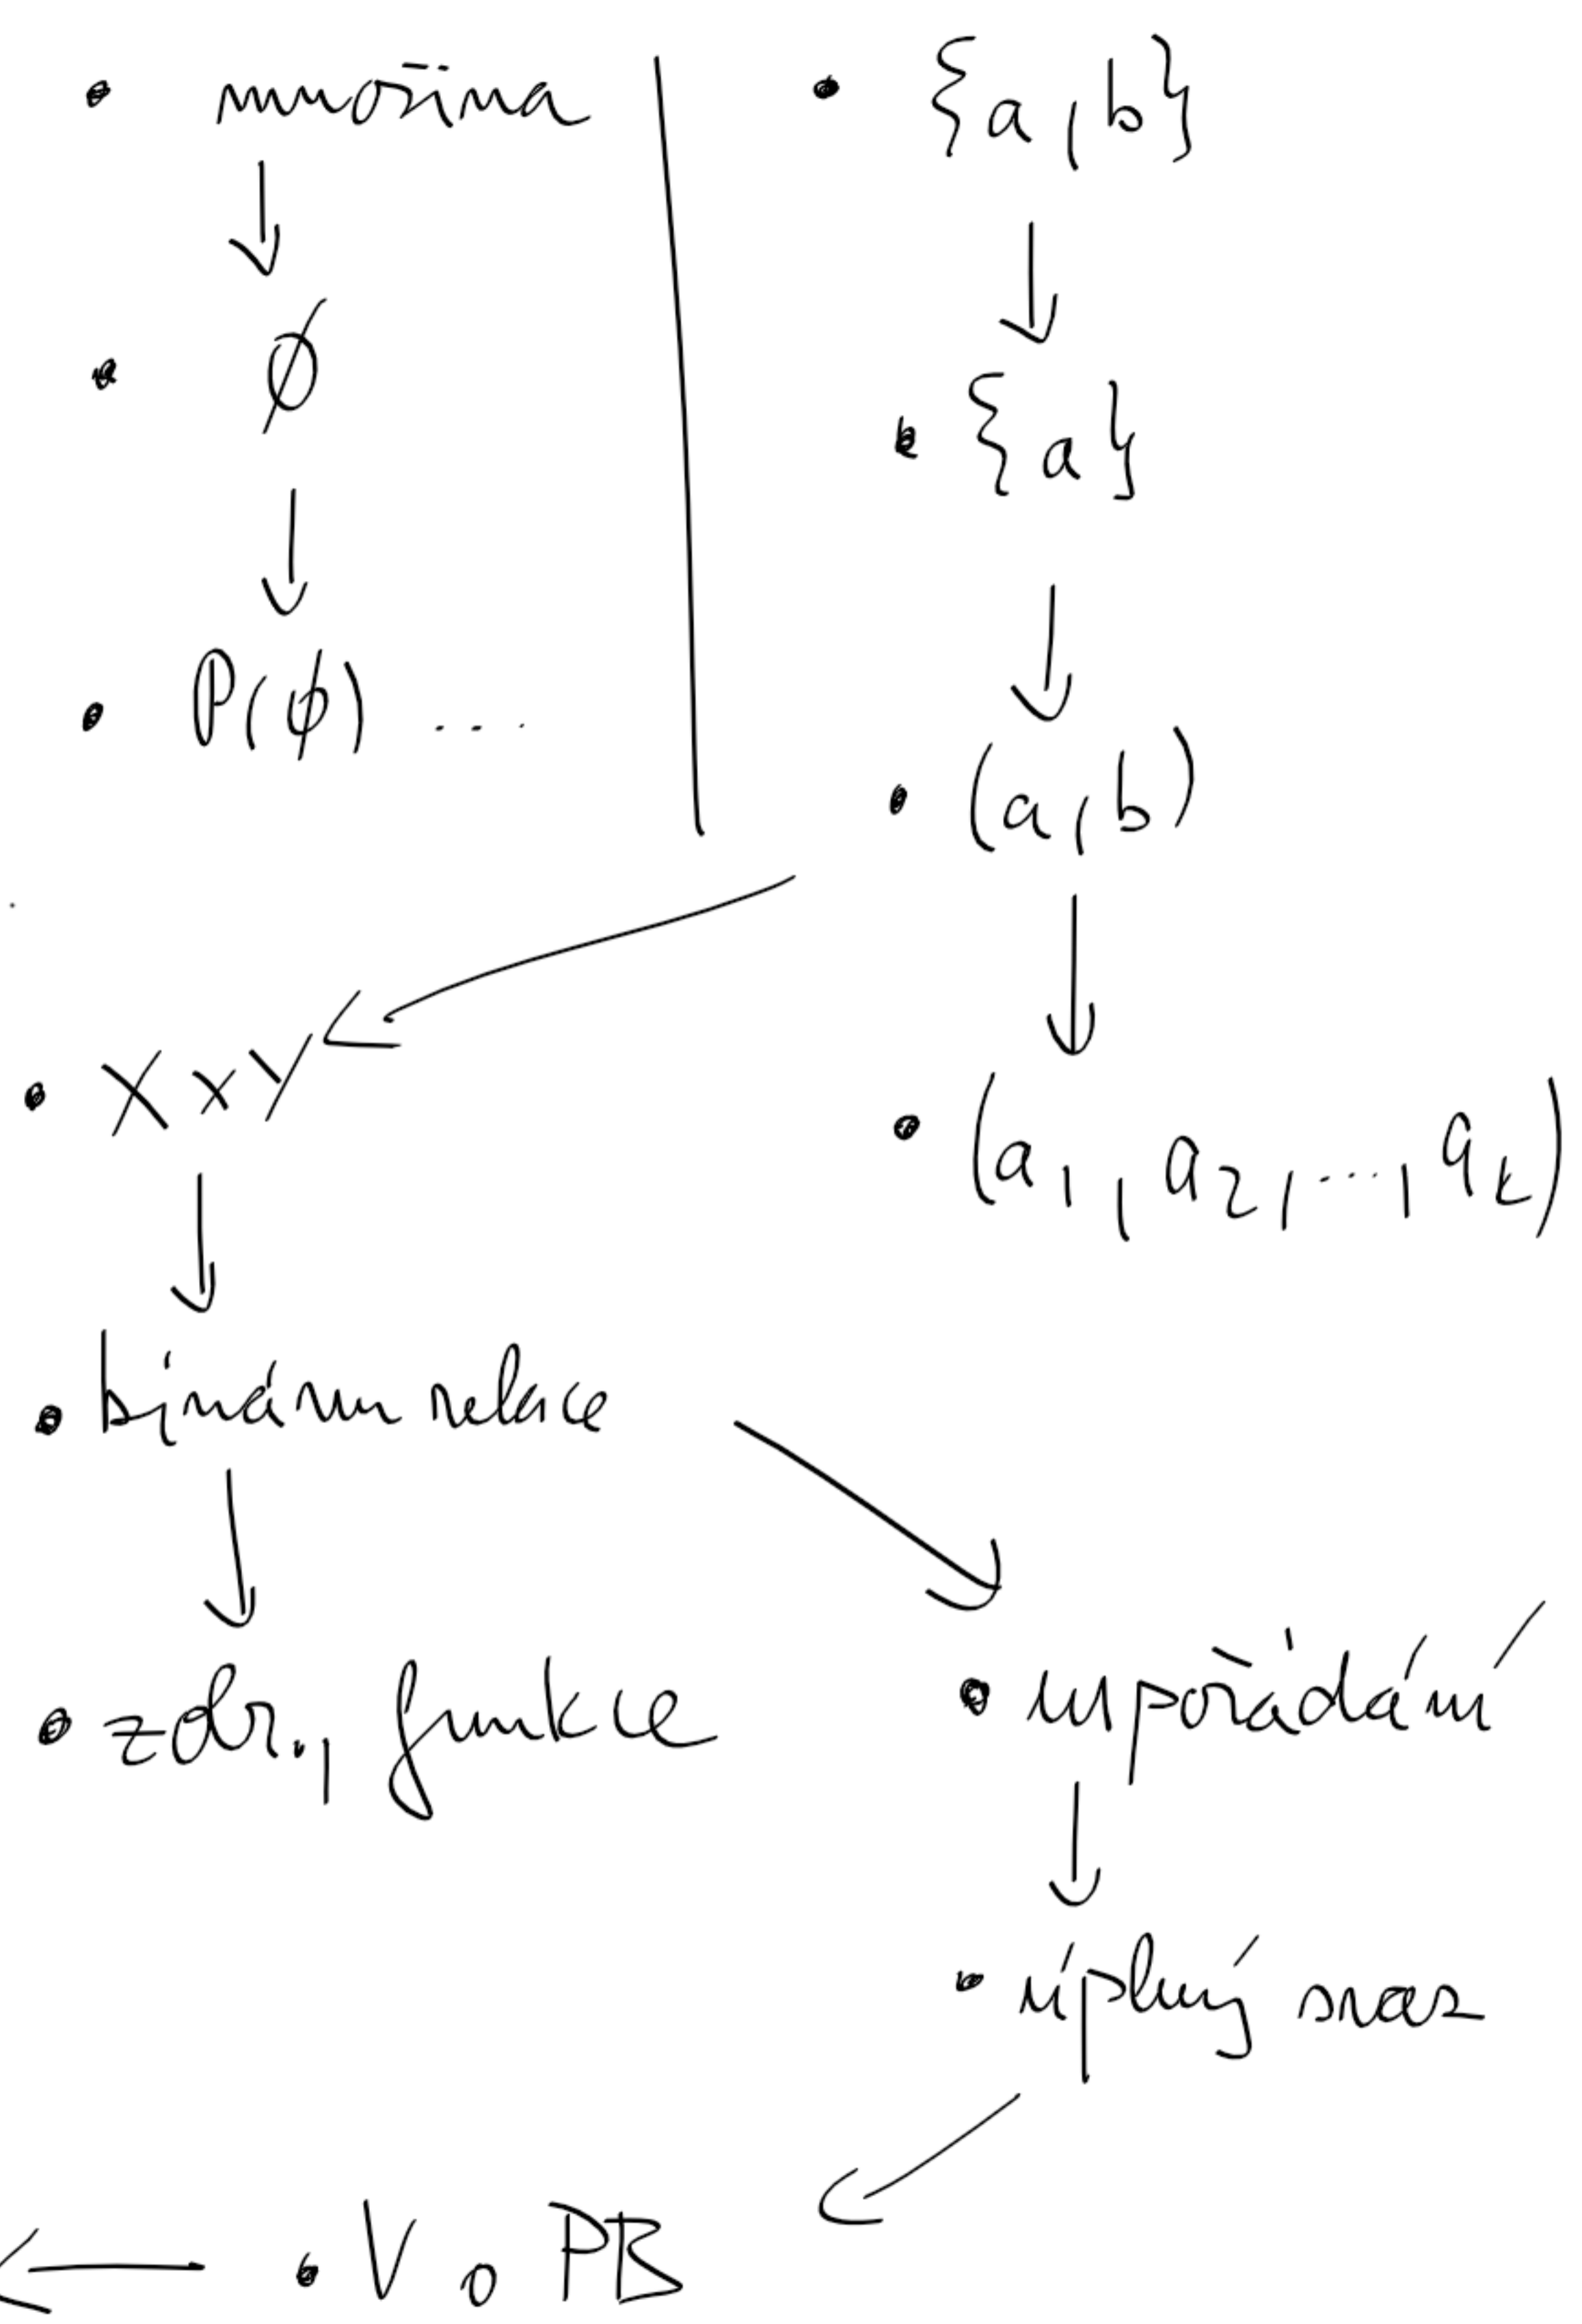 • množina
• ∅
• P(∅) ...
• {a, b}
• {a}
• (a, b)
• (a₁, a₂, ..., aₖ)
• X × Y
• binární relace
• zobr., funkce
• uspořádání
• úplný svaz
• V o PB